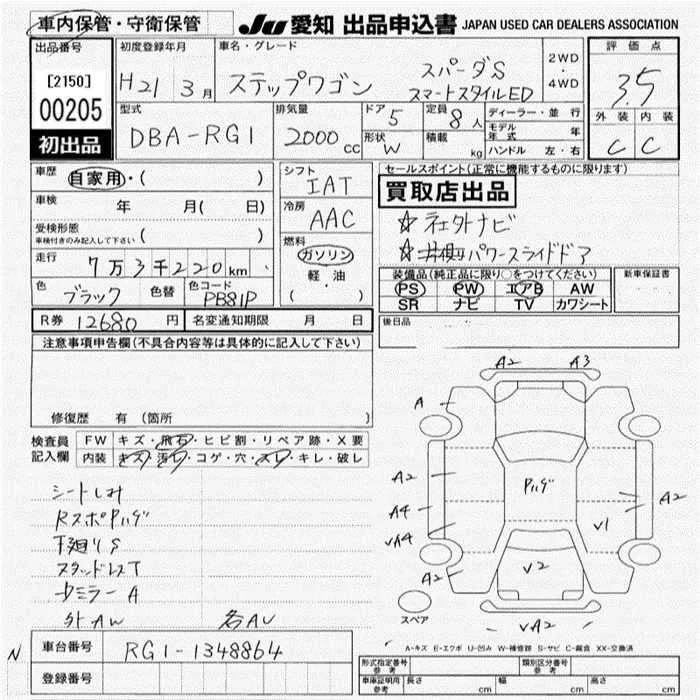 車内保管・守衛保管
JU 愛知 出品申込書 JAPAN USED CAR DEALERS ASSOCIATION
出品番号
[2150]
00205
初出品
初度登録年月
H21 3月
車名・グレード
ステップワゴン スパーダS
スマートスタイルED
2WD
・
4WD
評価点
3.5
外装 内装
C C
型式
DBA-RG1
排気量
2000cc
ドア 5
形状 W
定員 8人
積載 kg
ディーラー・並行
モデル年式 年
ハンドル 左・右
車歴 自家用・( )
車検 年 月( 日)
受検形態
車検付きのみ記入して下さい ( )
走行 7万3千220km
色 ブラック 色替 色コード PB81P
R券 12680円 名変通知期限 月 日
シフト
IAT
冷房
AAC
燃料
ガソリン
軽・油
( )
セールスポイント(正常に機能するものに限ります)
買取店出品
☆社外ナビ
☆井側パワースライドドア
装備品(純正品に限り○をつけてください)
PS PW エアB AW
SR ナビ TV カワシート
新車保証書
後日品
注意事項申告欄(不具合内容等は具体的に記入して下さい)
修復歴 有 (箇所 )
検査員
記入欄
FW キズ・飛石・ヒビ割・リペア跡・X要
内装 キズ・汚レ・コゲ・穴・スレ・キレ・破レ
シートしみ
RスポPハゲ
下廻りS
スタッドレスT
中ミラーA
外AW 各AU
A2 A3
A
A2
A4
VA4
A2
Pハゲ
V1
A2
V2
VA2
スペア
A-キズ E-エクボ U-凹み W-補修跡 S-サビ C-腐食 XX-交換済
N
車台番号 RG1-1348864
登録番号
形式指定番号
参考
類別区分番号
参考
車庫証明用
参考
長さ cm 幅 cm 高さ cm